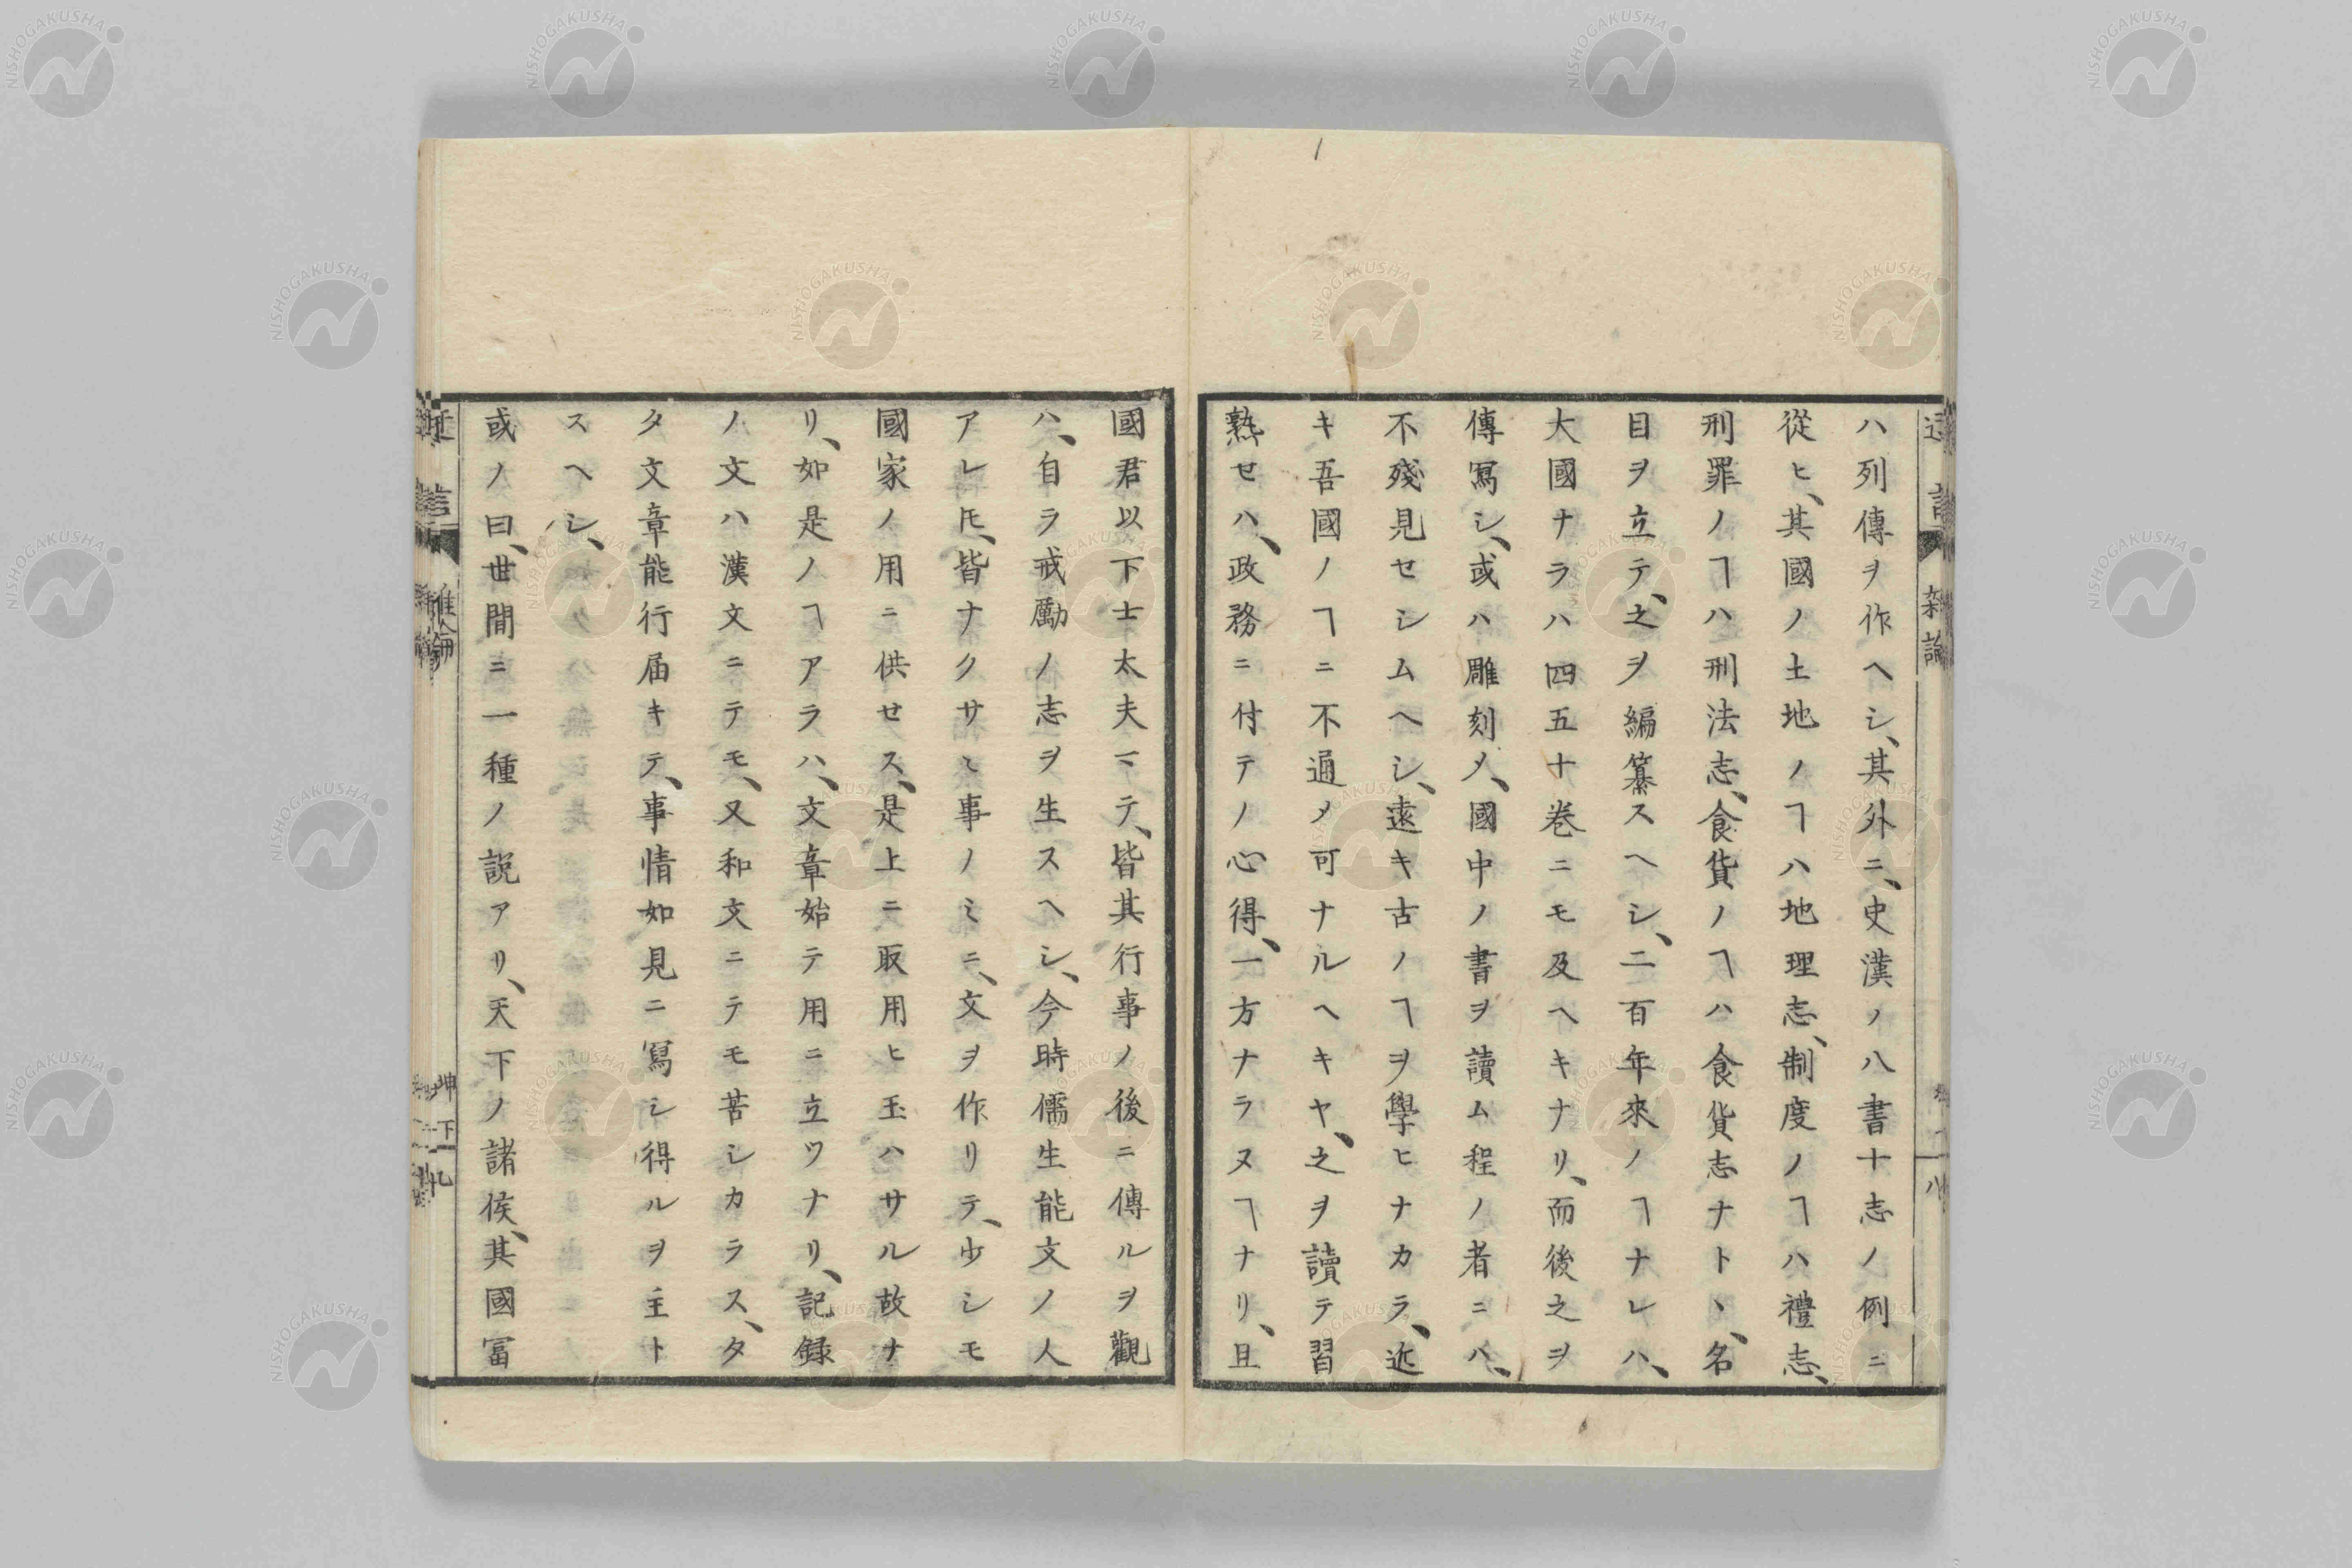 ハ列傳ヲ作ヘシ、其外ニ、史漢ノ八書十志ノ例ニ
從ヒ、其國ノ土地ノヿハ地理志、制度ノヿハ禮志、
刑罪ノヿハ刑法志、食貨ノヿハ食貨志ナトヽ、名
目ヲ立テ、之ヲ編纂スヘシ、二百年來ノヿナレハ、
大國ナラハ四五十卷ニモ及ヘキナリ、而後之ヲ
傳寫シ、或ハ雕刻メ、國中ノ書ヲ讀ム程ノ者ニハ、
不殘見セシムヘシ、遠キ古ノヿヲ學ヒナカラ、近
キ吾國ノヿニ不通メ可ナルヘキヤ、之ヲ讀テ習
熟セハ、政務ニ付テノ心得、一方ナラヌヿナリ、且
國君以下士太夫マテ、皆其行事ノ後ニ傳ルヲ觀
ハ、自ラ戒勵ノ志ヲ生スヘシ、今時儒生能文ノ人
アレ𪜈、皆ナクサミ事ノミニ、文ヲ作リテ、少シモ
國家ノ用ニ供セス、是上ニ取用ヒ玉ハサル故ナ
リ、如是ノヿアラハ、文章始テ用ニ立ツナリ、記録
ノ文ハ漢文ニテモ、又和文ニテモ苦シカラス、タ
タ文章能行届キテ、事情如見ニ寫シ得ルヲ主ト
スヘシ、
或ノ曰、世間ニ一種ノ説アリ、天下ノ諸侯、其國冨
雜論
坤下